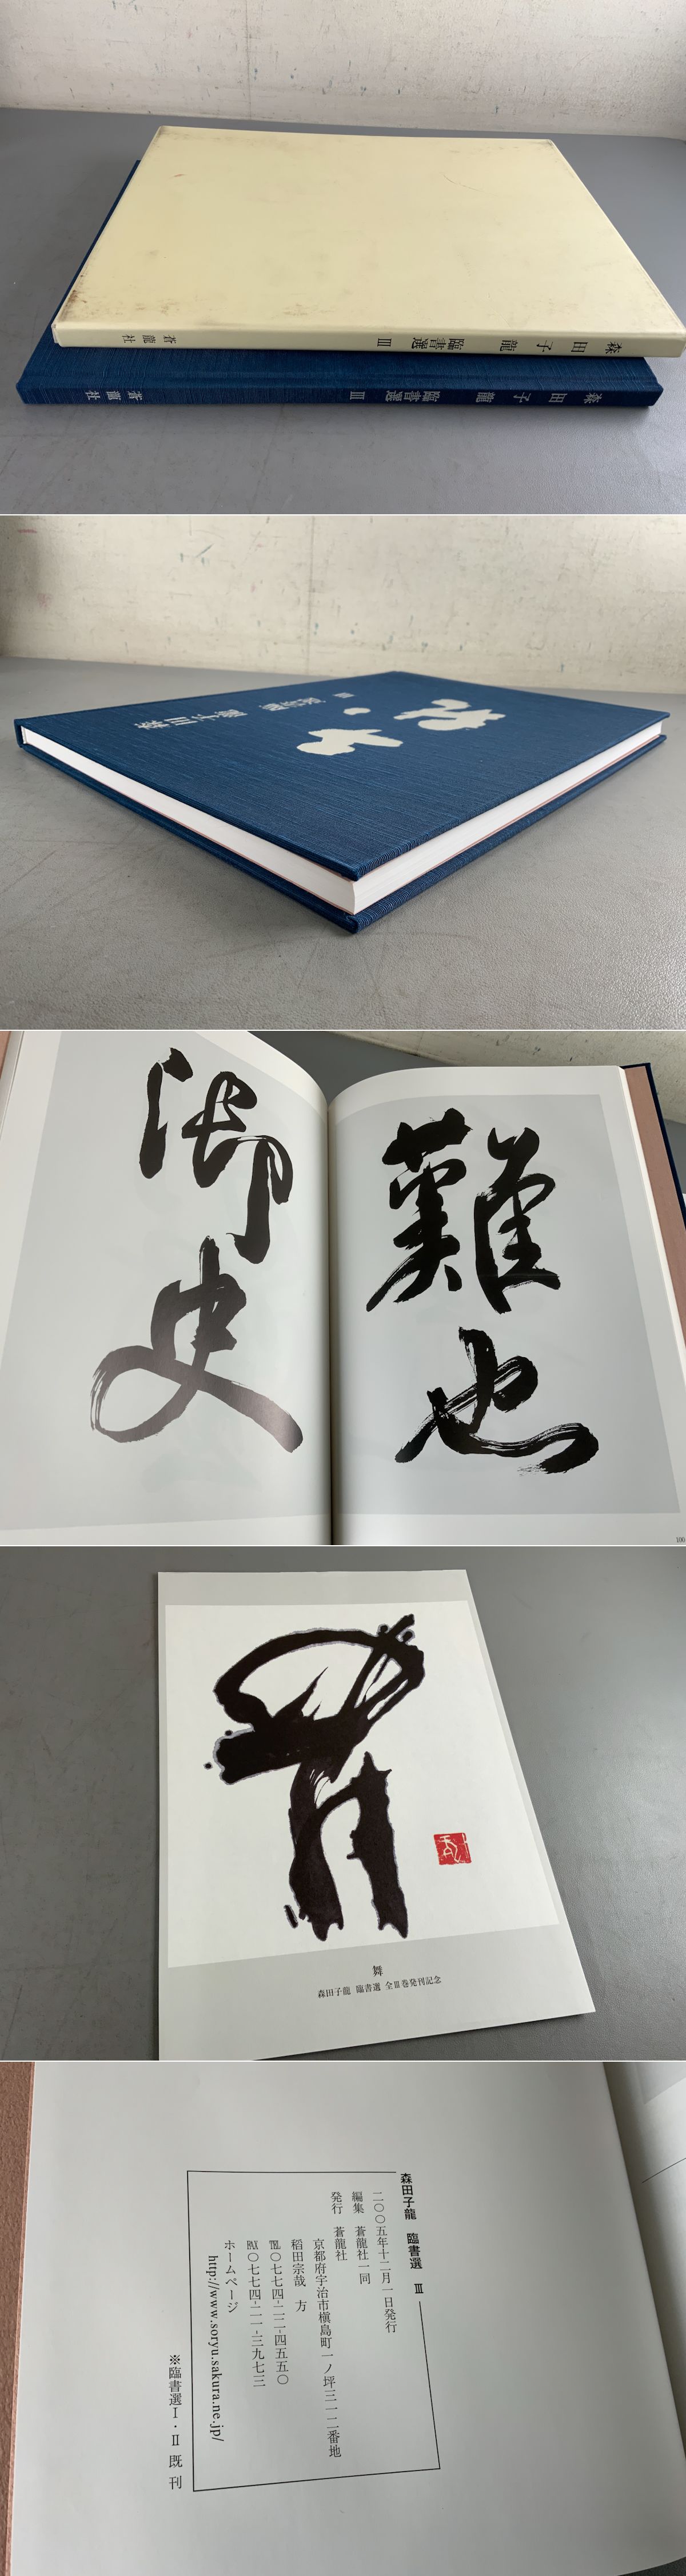 森田子龍 臨書選 Ⅲ 蒼龍社
森田子龍 臨書選 Ⅲ 蒼龍社
森田子龍 臨書選 Ⅲ
難也
御史
100
舞
森田子龍 臨書選 全Ⅲ巻発刊記念
森田子龍 臨書選 Ⅲ
二〇〇五年十二月一日発行
編集 蒼龍社一同
発行 蒼龍社
京都府宇治市槇島町一ノ坪三一二番地
稲田宗哉 方
TEL〇七七四-二二-四五五〇
FAX〇七七四-二一-三九七三
ホームページ
http://www.soryu.sakura.ne.jp/
※臨書選Ⅰ・Ⅱ 既刊